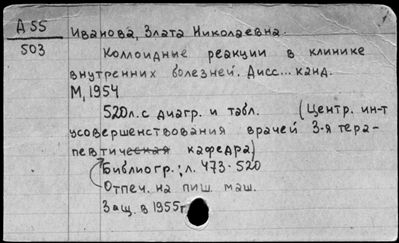 Д 55
503
Иванова, Злата Николаевна.
Коллоидные реакции в клинике
внутренних болезней. Дисс... канд.
М, 1954
520л. с диагр. и табл. (Центр. ин-т
усовершенствования врачей 3-я тера-
певтическая кафедра)
Библиогр.: л. 473-520
Отпеч. на пиш. маш.
Защ. в 1955г.